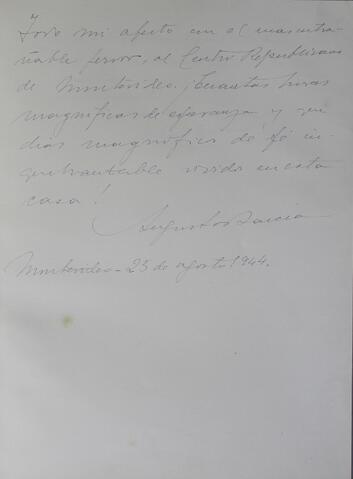 Todo mi afecto con el mas entra-
ñable fervor, al Centro Republicano
de Montevideo. ¡Cuantas horas
magnificas de esperanza y que
dias magnificos de fé in-
quebrantable vividos en esta
casa!
Augusto Barcia
Montevideo - 25 de agosto 1944.